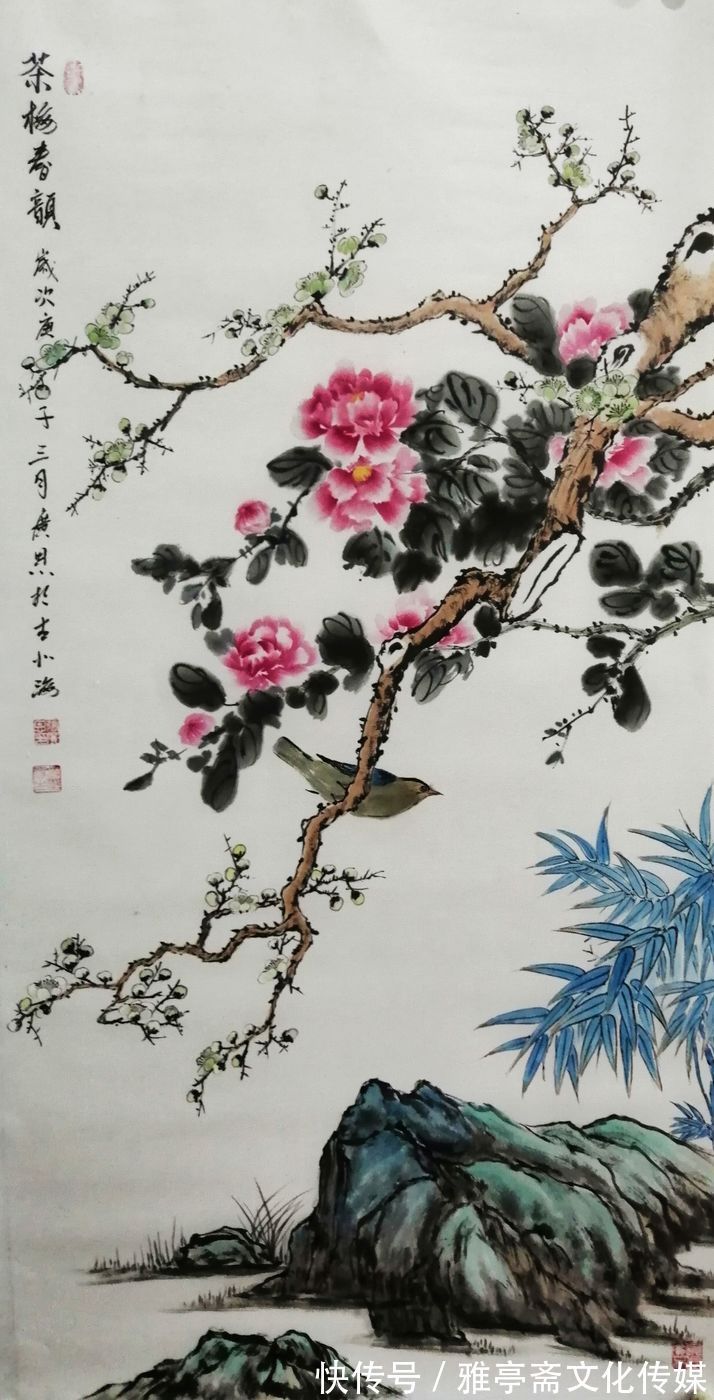 茶梅春韻
歲次庚子三月廣興於古北海
快传号 / 雅亭斋文化传媒